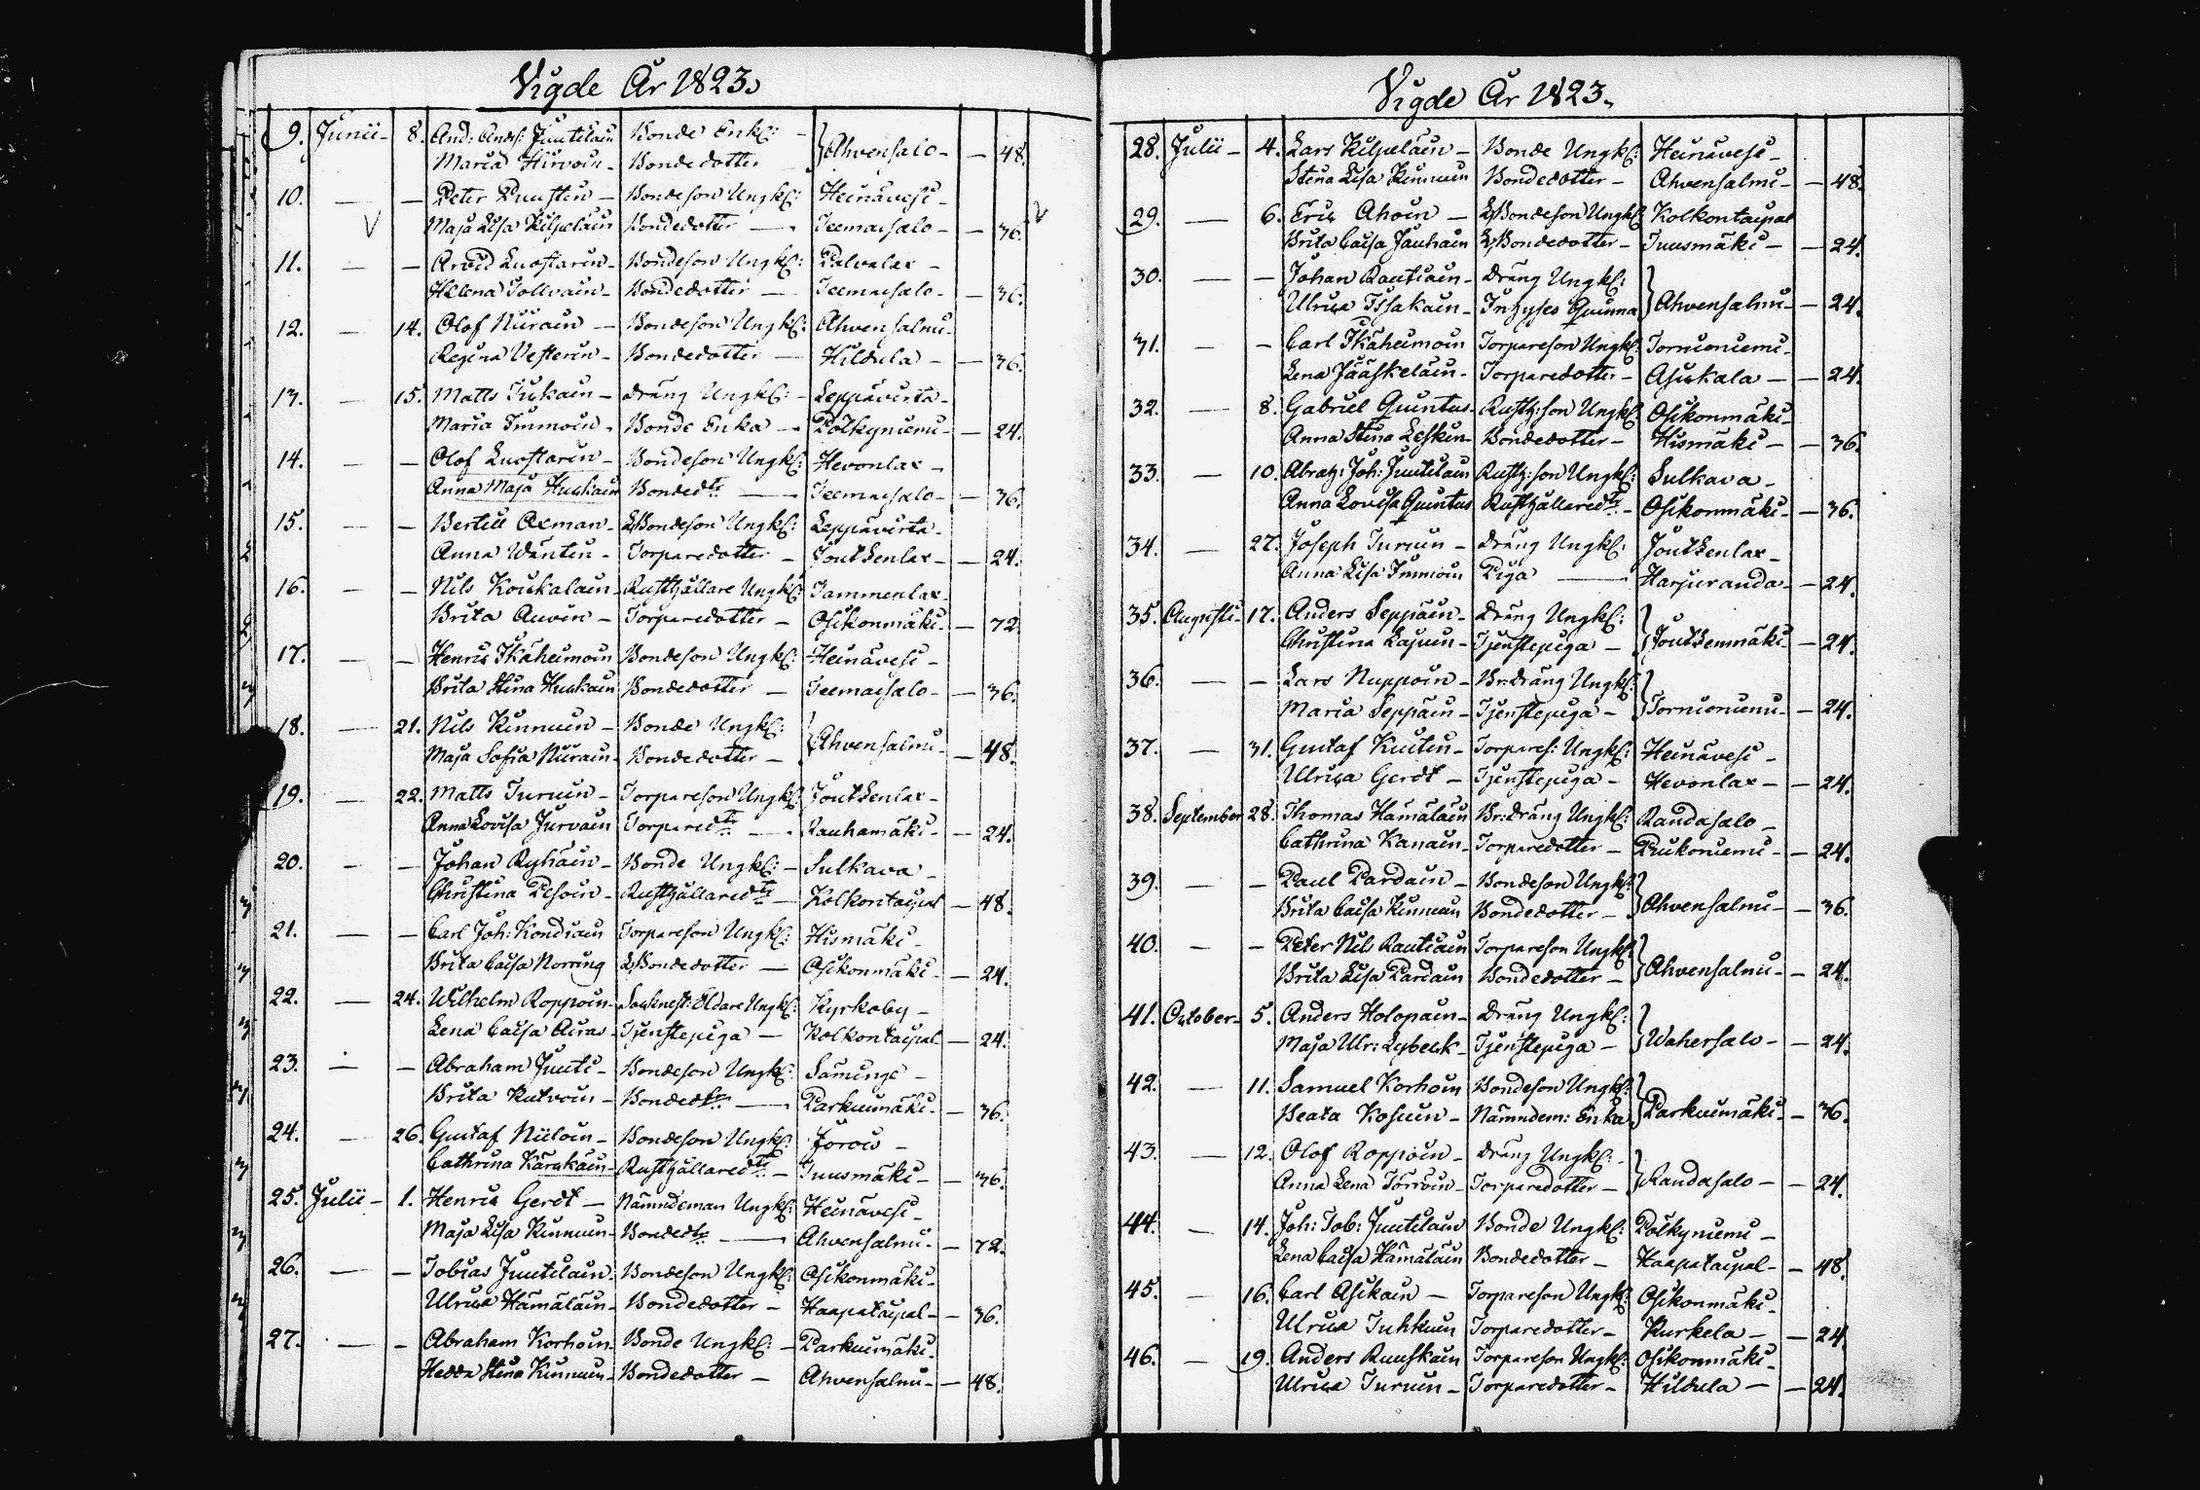 Vigde År 1823.
9. Junii - 8. And: Ands: Juutilain Bonde Enkl: - } Ahvensalo - - 48.
Maria Hirvoin - Bondedotter
10. — — Peter Puustin - Bondeson Ungkl: Heinävesi -
Maja Lisa Kilpelain Bondedotter — Teemasalo - - 36.
11. — — Arvid Luostarin - Bondeson Ungkl: Palvalax -
Helena Tolvain - Bondedotter — Teemasalo - - 36.
12. — 14. Olof Niirain - Bondeson Ungkl: Ahvensalmi -
Regina Vesterin - Bondedotter — Hildula - - 36.
13. — 15. Matts Tiskain - Dräng Ungkl: - Leppävirta -
Maria Immoin - Bonde Enka - Pölkyniemi - - 24.
14. — — Olof Luostarin - Bondeson Ungkl: Hevonlax -
Anna Maja Huskain Bondedtr — Teemasalo - - 36.
15. — — Bertill Axman - LBondeson Ungkl: Leppävirta -
Anna Wäntin - Torparedotter - Joutsenlax - - 24.
16. — — Nils Koukalain - Rusthållare Ungkl: Tammenlax -
Brita Auvin - Torparedotter - Osikonmäki - - 72.
17. — — Henric Ikäheimoin Bondeson Ungkl: Heinävesi -
Brita Stina Huskain Bondedotter - Teemasalo - - 36.
18. — 21. Nils Kinnuin - Bonde Ungkl: } Ahvensalmi - - 48.
Maja Sofia Niirain - Bondedotter -
19. — 22. Matts Turuin - Torpareson Ungkl: Joutsenlax -
Anna Lovisa Jurvain Torparedtr — Rauhamäki - - 24.
20. — — Johan Ryhäin - Bonde Ungkl: - Sulkava -
Christina Pesoin - Rusthållaredtr - Kolkontaipal - 48.
21. — — Carl Joh: Kondiain Torpareson Ungkl: Hismäki -
Brita Caisa Norring LBondedotter — Osikonmäki - - 24.
22. — 24. Wilhelm Roppoin - Sockne Ungkl: Kyrkoby -
Lena Caisa Auras - Tjenstepiga — Kolkontaipal - 24.
23. — — Abraham Juuti - Bondeson Ungkl: Säminge -
Brita Kutvoin - Bondedtr — Parkuimäki - - 36.
24. — 26. Gustaf Niiloin - Bondeson Ungkl: Jorois -
Cathrina Kärkkäin - Rusthållaredtr - Tuusmäki - - 36.
25. Julii - 1. Henric Gerdt — Nämndeman Ungkl: Heinävesi -
Maja Lisa Kinnuin - Bondedtr — Ahvensalmi - - 72.
26. — — Tobias Juutilain: Bondeson Ungkl: Osikonmäki -
Ulrica Hämäläin - Bondedotter - Haapataipal - - 36.
27. — — Abraham Korhoin - Bonde Ungkl: - Parkuimäki.
Hedda Stina Kinnuin - Bondedotter - Ahvensalmi - - 48.
Vigde År 1823.
28. Julii - 4. Lars Kilpeläin - Bonde Ungkl: Heinävesi -
Stina Lisa Kinnuin Bondedotter - Ahvensalmi - - 48.
29. — 6. Eric Ahoin - LBondeson Ungkl: Kolkontaipal
Brita Caisa Jauhain LBondedotter - Tuusmäki - - 24.
30. — — Johan Rautiain - Dräng Ungkl: } Ahvensalmi - - 24.
Ulrica Issakain - Inhyses Quinna
31. — — Carl Ikäheimoin Torpareson Ungkl: Torniоniemi -
Lena Jääskeläin - Torparedotter - Asikkala - - 24.
32. — 8. Gabriel Quintus - Rusth:son Ungkl: Osikonmäki -
Anna Stina Leskin - Bondedotter - Hismäki - - 36.
33. — 10. Abrah: Joh: Juutilain Rusth:son Ungkl: Sulkava -
Anna Lovisa Quintus Rusthållaredtr - Osikonmäki - - 36.
34. — 27. Joseph Turuin - Dräng Ungkl: Joutsenlax -
Anna Lisa Immoin Piga — Harjuranda - - 24.
35. Augusti - 17. Anders Seppäin - Dräng Ungkl: } Joutsenmäki - 24.
Christina Lajuin - Tjenstepiga -
36. — — Lars Nuppoin - Br:dräng Ungkl: } Tornioniemi - - 24.
Maria Seppäin - Tjenstepiga -
37. — 31. Gustaf Kiutin - Torpares: Ungkl: Heinävesi -
Ulrica Gerdt - Tjenstepiga - Hevonlax - - 24.
38. September 28. Thomas Hämäläin Br:dräng Ungkl: Randasalo -
Cathrina Kanain - Torparedotter - Priikoniemi - - 24.
39. — — Paul Pardain - Bondeson Ungkl: } Ahvensalmi - - 36.
Brita Caisa Kinnuin Bondedotter -
40. — — Peter Nils Rautiain Torpareson Ungkl: } Ahvensalmi - - 24.
Brita Lisa Pardain Bondedotter -
41. October - 5. Anders Holopain - Dräng Ungkl: } Wahersalo - - 24.
Maja Ulr: Lybeck - Tjenstepiga -
42. — 11. Samuel Korhoin Bondeson Ungkl: } Parkuimäki - - 36.
Beata Kosuin - Nämndem: Enka
43. — 12. Olof Roppoin - Dräng Ungkl: - } Randasalo - - 24.
Anna Lena Törröin - Torparedotter -
44. — 14. Joh: Tob: Juutilain Bonde Ungkl: Pölkyniemi -
Lena Caisa Hämäläin Bondedotter - Haapataipal - - 48.
45. — 16. Carl Asikain — Torpareson Ungkl: Osikonmäki -
Ulrica Tuhkuin Torparedotter - Kurkela - - 24.
46. — 19. Anders Ruuskain Torpareson Ungkl: Osikonmäki -
Ulrica Turuin - Torparedotter - Hildula - - 24.